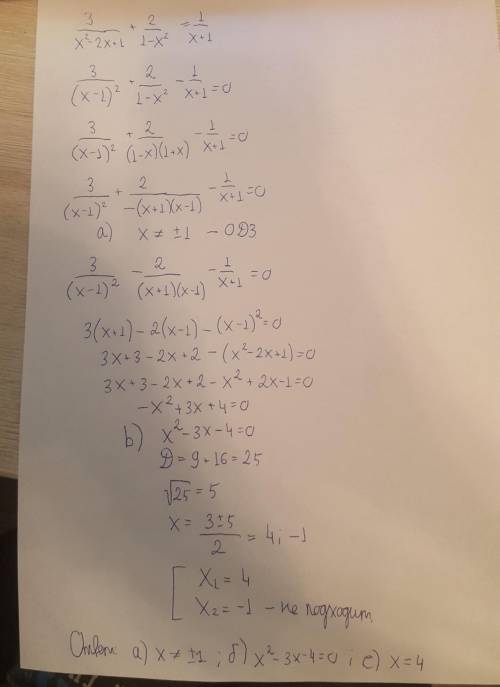 3/(x²-2x+1) + 2/(1-x²) = 1/(x+1)
3/(x-1)² + 2/(1-x²) - 1/(x+1) = 0
3/(x-1)² + 2/((1-x)(1+x)) - 1/(x+1) = 0
3/(x-1)² + 2/(-(x+1)(x-1)) - 1/(x+1) = 0
a) x ≠ ±1 - ОДЗ
3/(x-1)² - 2/((x+1)(x-1)) - 1/(x+1) = 0
3(x+1) - 2(x-1) - (x-1)² = 0
3x+3-2x+2-(x²-2x+1)=0
3x+3-2x+2-x²+2x-1=0
-x²+3x+4=0
b) x²-3x-4=0
D=9+16=25
√25 = 5
x = (3±5)/2 = 4; -1
[ x₁ = 4
x₂ = -1 - не подходит
Ответ: a) x ≠ ±1; б) x²-3x-4=0; c) x=4